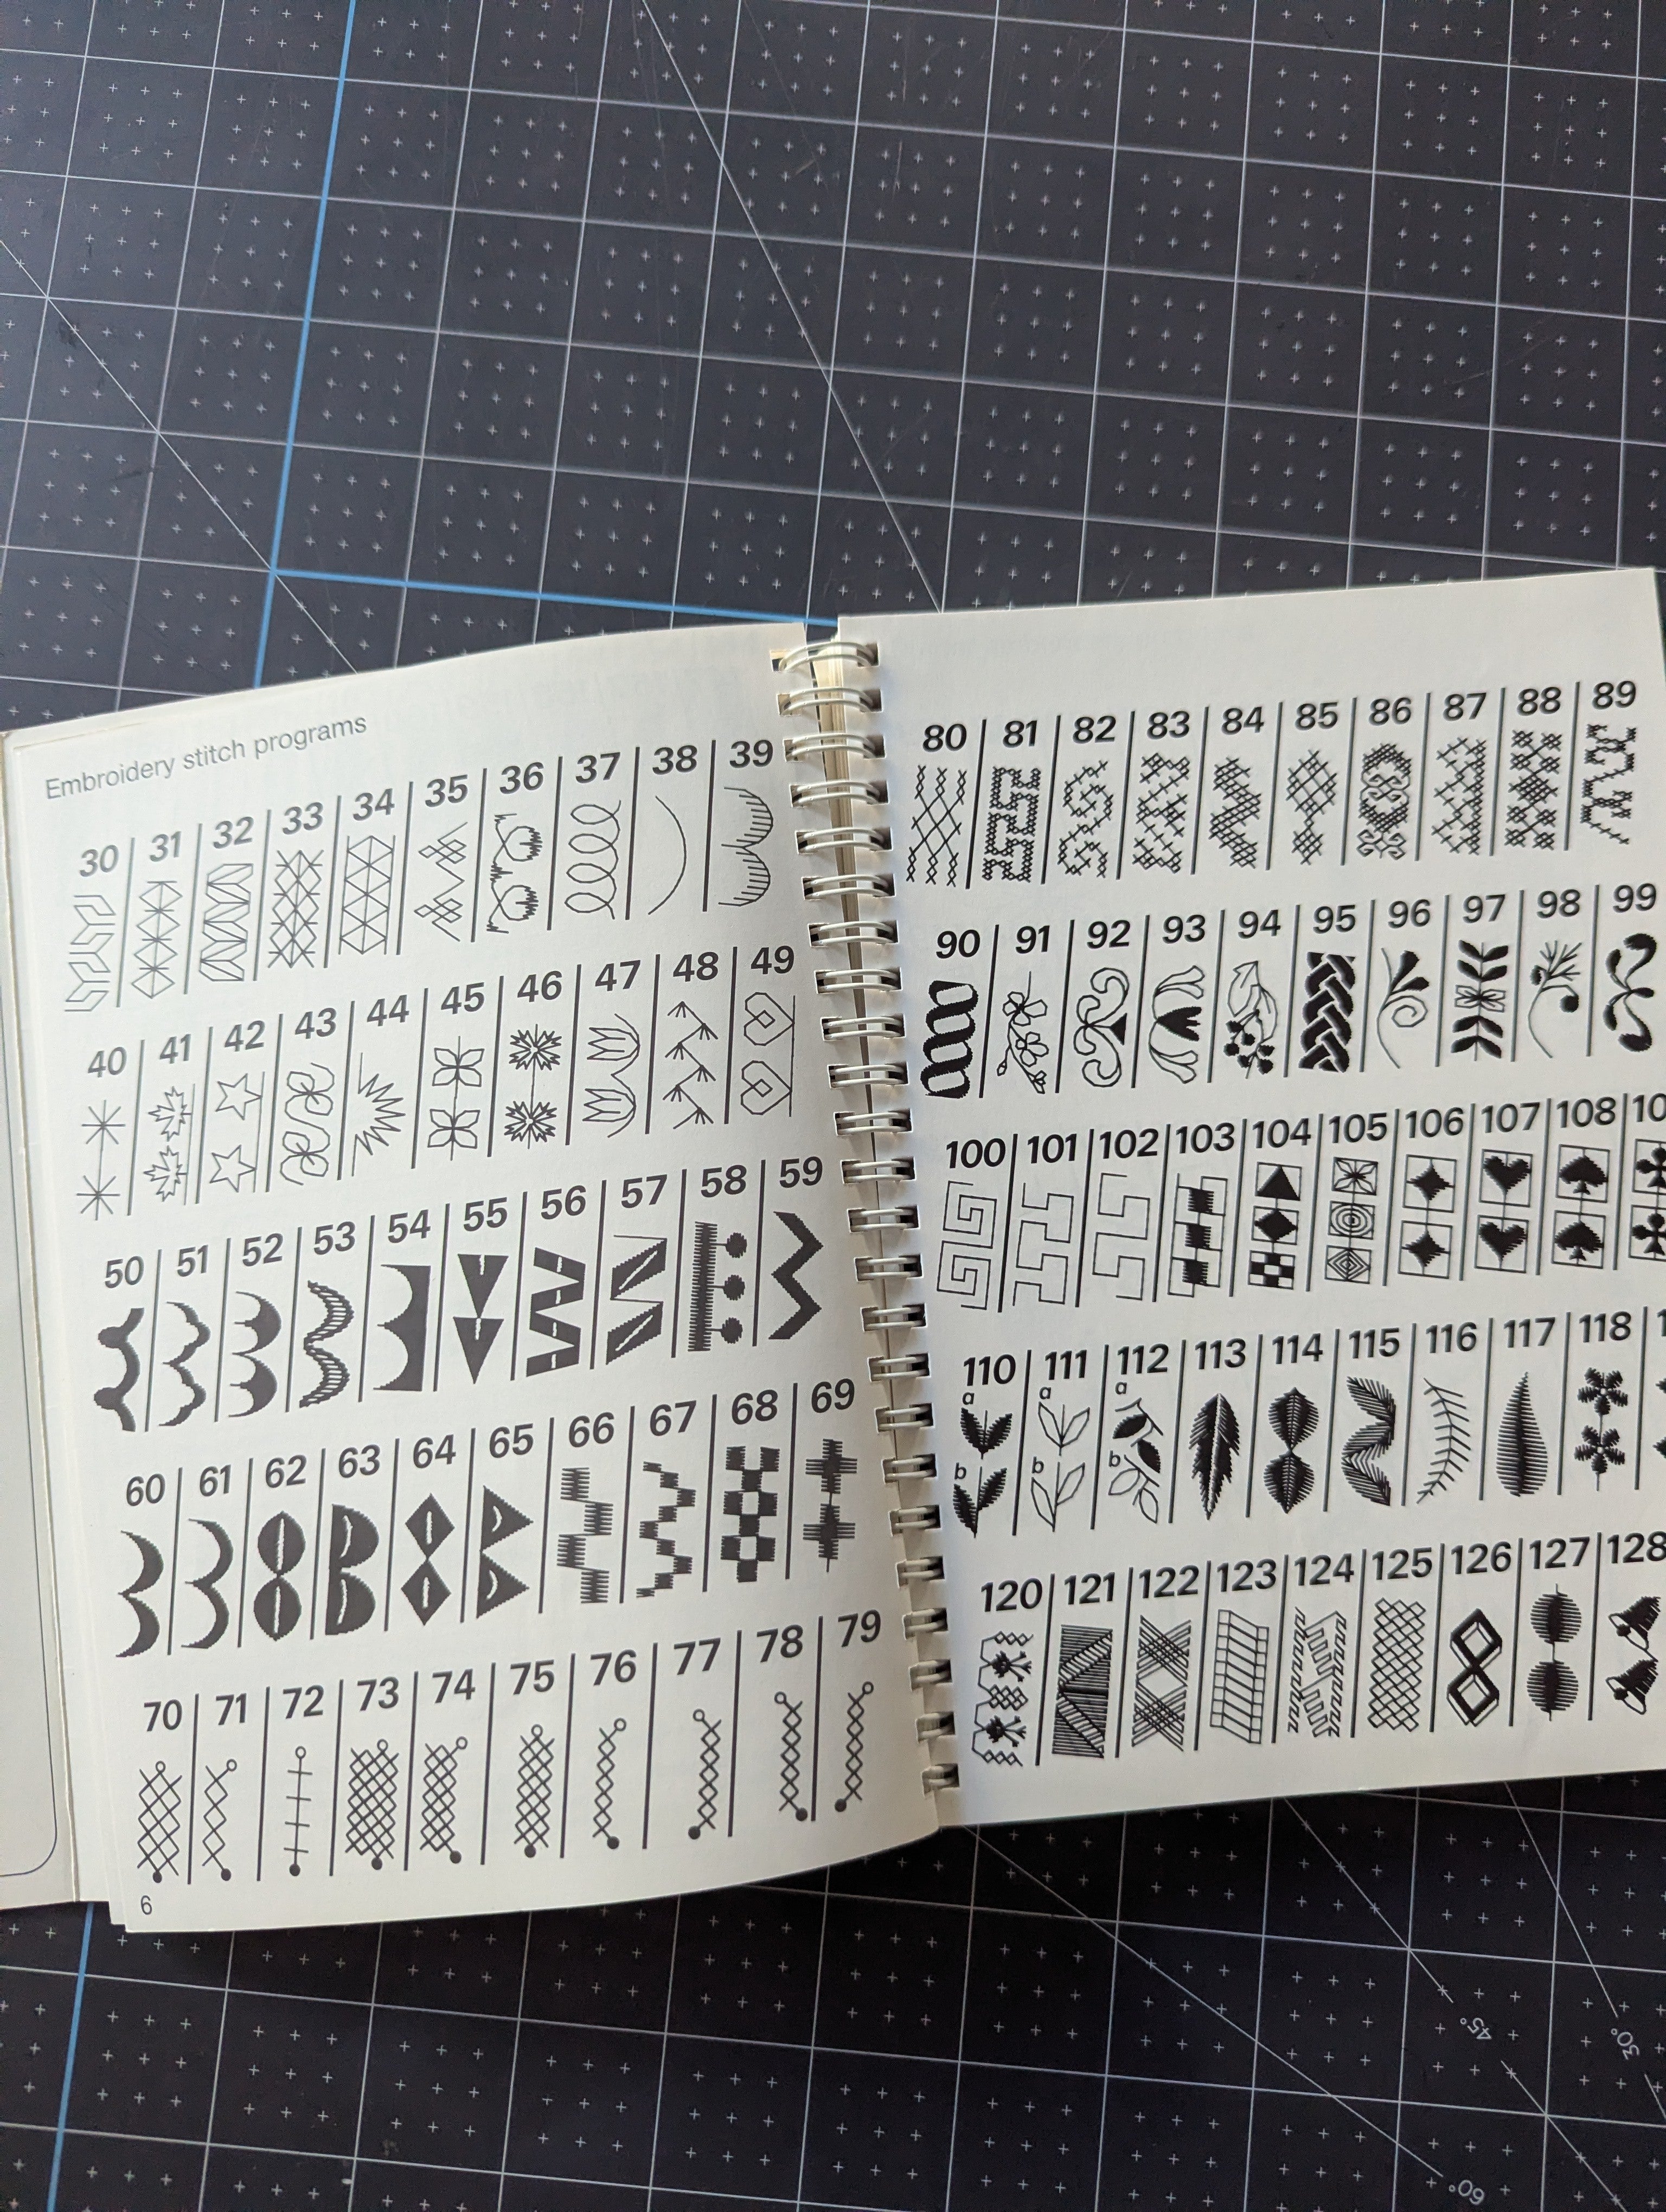 Embroidery stitch programs
30 31 32 33 34 35 36 37 38 39
40 41 42 43 44 45 46 47 48 49
50 51 52 53 54 55 56 57 58 59
60 61 62 63 64 65 66 67 68 69
70 71 72 73 74 75 76 77 78 79
6
80 81 82 83 84 85 86 87 88 89
90 91 92 93 94 95 96 97 98 99
100 101 102 103 104 105 106 107 108
110 111 112 113 114 115 116 117 118
a a a
b b b
120 121 122 123 124 125 126 127 128
45°
30°
60°